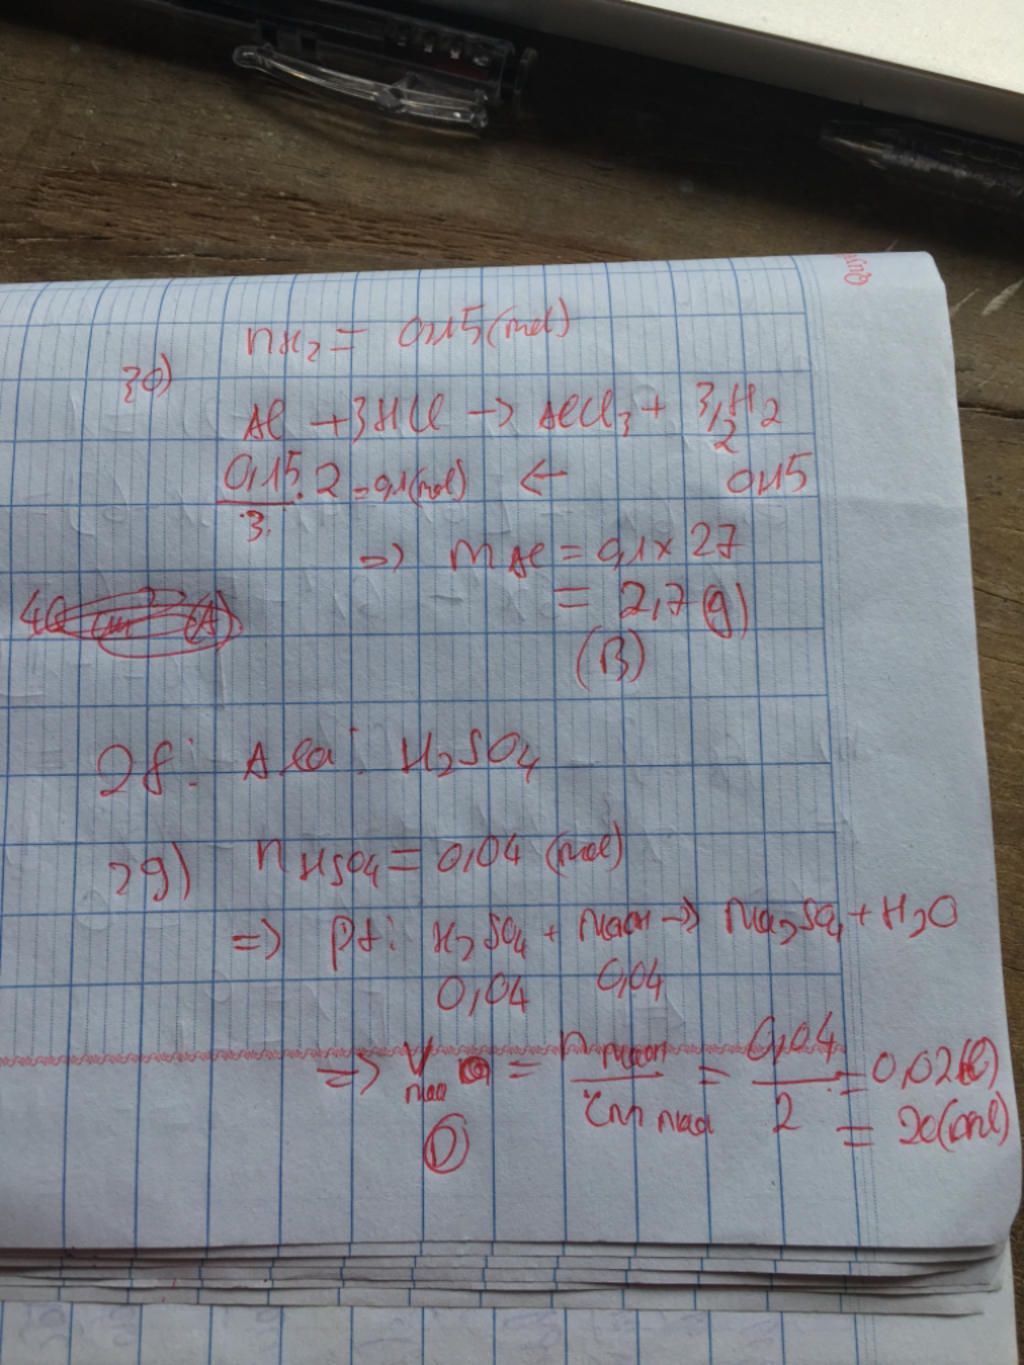 nH2 = 0,15 (mol)
30)
Al + 3HCl -> AlCl3 + 3/2 H2
0,15.2/3 = 0,1 (mol) ← 0,15
=> mAl = 0,1 x 27
= 2,7 (g)
(B)
28: A là: H2SO4
29) nH2SO4 = 0,04 (mol)
=> Pt: H2SO4 + NaOH -> Na2SO4 + H2O
0,04 0,04
=> V = nNaOH / CM = 0,04/2 = 0,02 (l)
= 20 (ml)
(D)